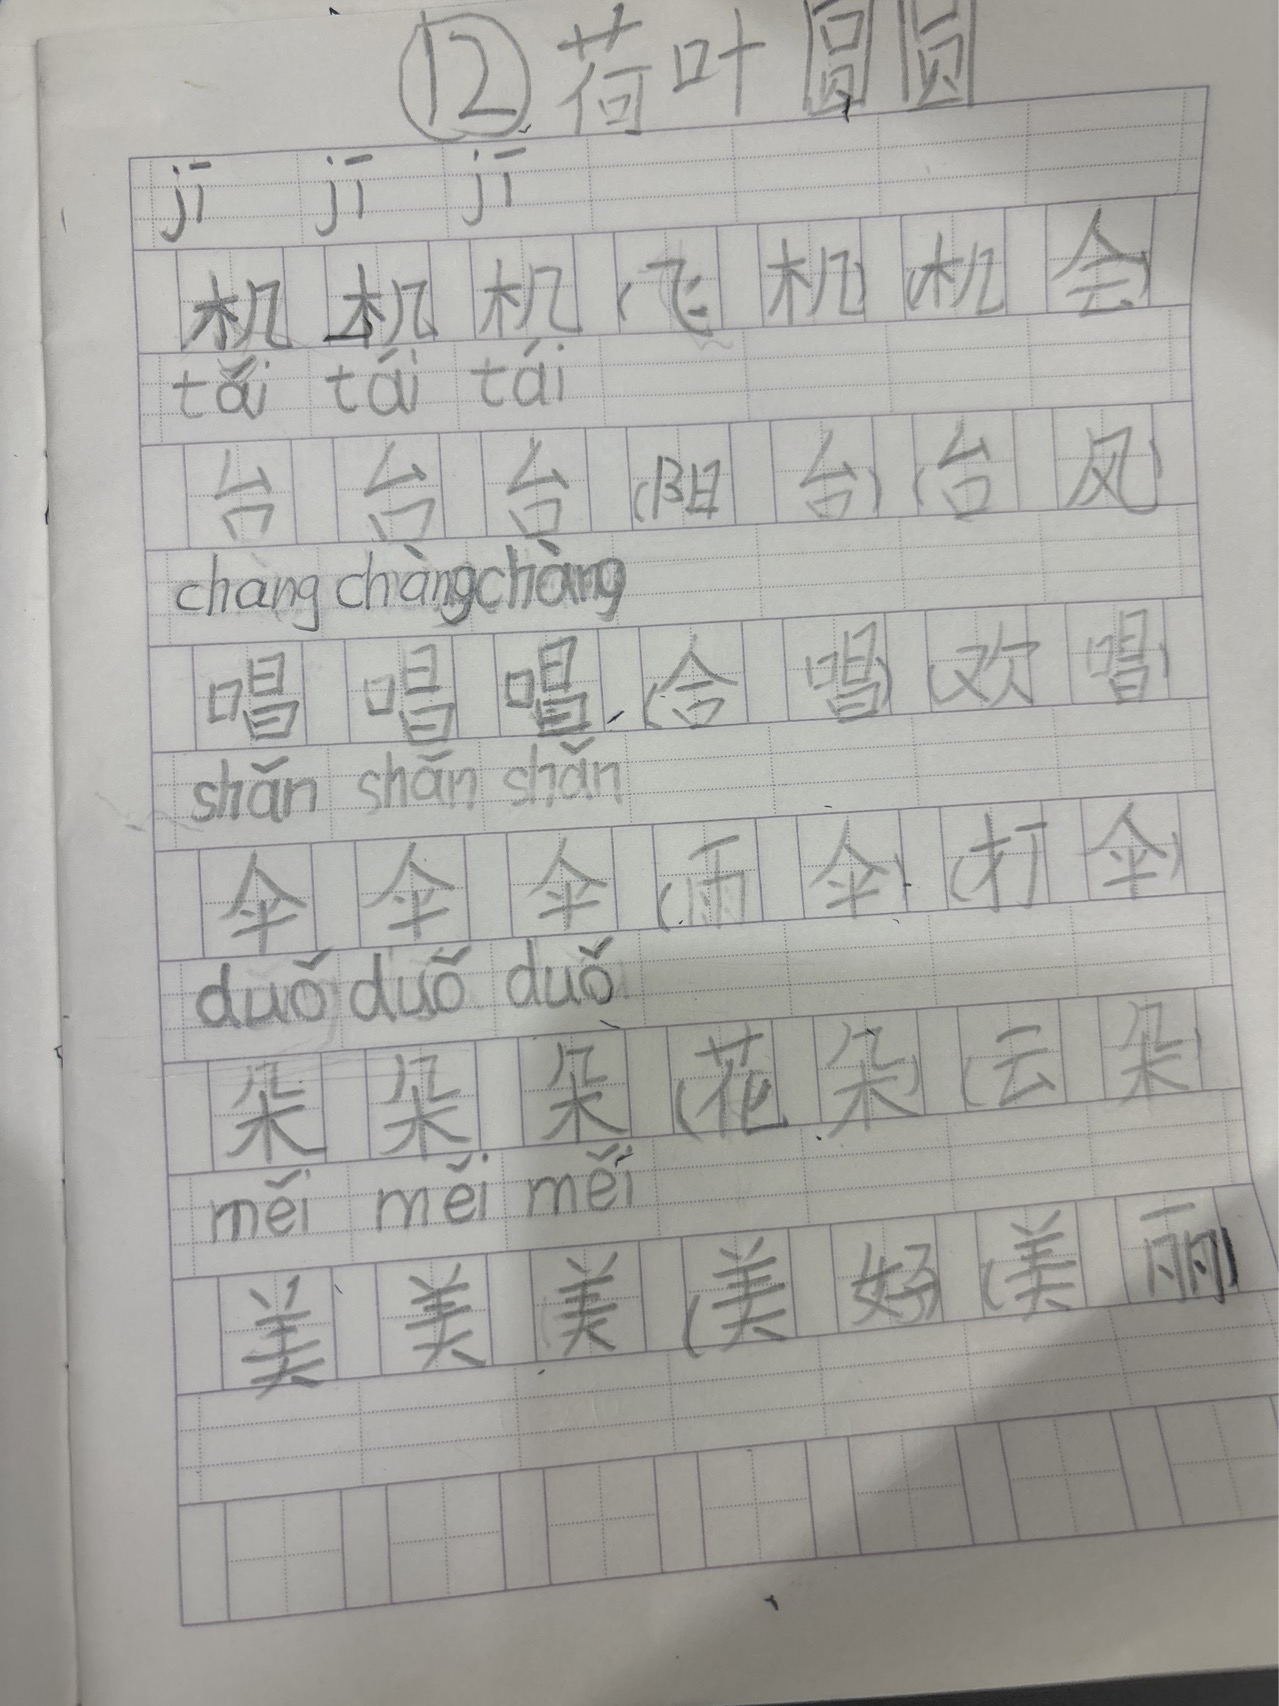 ⑫荷叶圆圆
jī jī jī
机 机 机 (飞 机) (机 会)
tái tái tái
台 台 台 (阳 台) (台 风)
chàng chàng chàng
唱 唱 唱 (合 唱) (欢 唱)
shǎn shǎn shǎn
伞 伞 伞 (雨 伞) (打 伞)
duǒ duǒ duǒ
朵 朵 朵 (花 朵) (云 朵)
měi měi měi
美 美 美 (美 好) (美 丽)